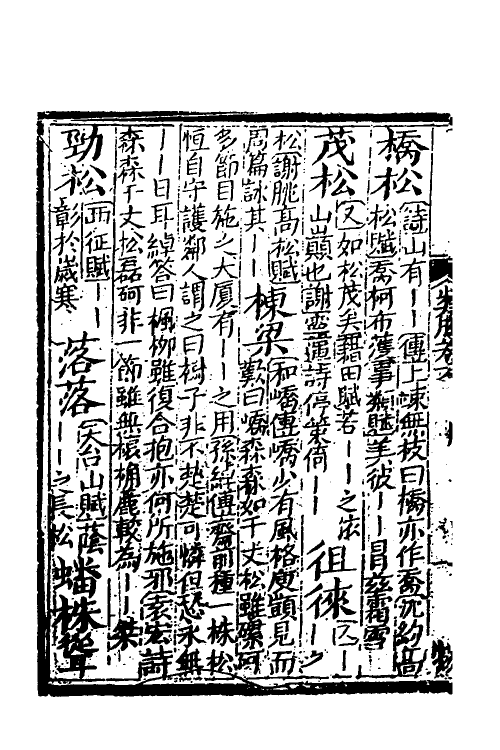 橋松詩山有——傳上竦無枝曰橋亦作喬沈約高
松賦喬柯布濩事類賦美彼——冒茲霜雪
茂松又如松茂矣藉田賦若——之依
山巔也謝靈運詩停策倚——徂徠又——之
松謝朓高松賦
周篇詠其——棟梁和嶠傳嶠少有風格庾顗見而
歎曰嶠森森如千丈松雖磥砢
多節目施之大廈有——之用孫綽傳齋前種一株松
恒自守護鄰人謂之曰樹子非不楚楚可憐但恐永無
——日耳綽答曰楓柳雖復合抱亦何所施邪袁宏詩
森森千丈松磊砢非一節雖無榱桷麗較為——桀
勁松西征賦——
彰於歲寒落落天台山賦蔭
——之長松蟠株